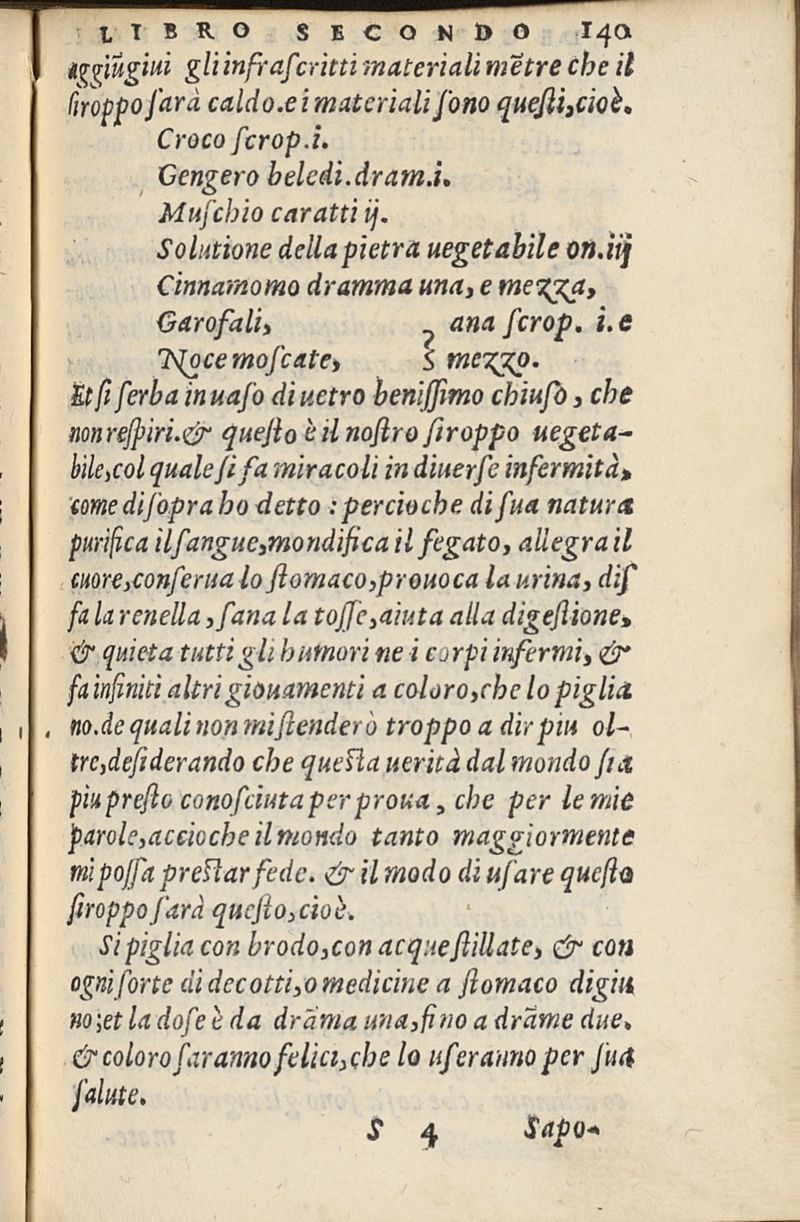 LIBRO SECONDO 140
aggiũgiui gli infrascritti materiali mẽtre che il
siroppo sarà caldo. e i materiali sono questi, cioè.
Croco scrop. i.
Gengero beledi. dram. i.
Muschio caratti ij.
Solutione della pietra uegetabile on. iij
Cinnamomo dramma una, e mezza,
Garofali, } ana scrop. i. e
Noce moscate, } mezzo.
Et si serba in uaso di uetro benissimo chiuso, che
non respiri. & questo è il nostro siroppo uegeta-
bile, col quale si fa miracoli in diuerse infermità,
come di sopra ho detto : percioche di sua natura
purifica il sangue, mondifica il fegato, allegra il
cuore, conserua lo stomaco, prouoca la urina, dis
fa la renella, sana la tosse, aiuta alla digestione,
& quieta tutti gli humori ne i corpi infermi, &
fa infiniti altri giouamenti a coloro, che lo piglia
no. de quali non mi stenderò troppo a dir piu ol-
tre, desiderando che questa uerità dal mondo sia
piu presto conosciuta per proua, che per le mie
parole, accioche il mondo tanto maggiormente
mi possa prestar fede. & il modo di usare questo
siroppo sarà questo, cioè.
Si piglia con brodo, con acque stillate, & con
ogni sorte di decotti, o medicine a stomaco digiu
no; et la dose è da drãma una, fino a drãme due.
& coloro saranno felici, che lo useranno per sua
salute.
S 4 Sapo-